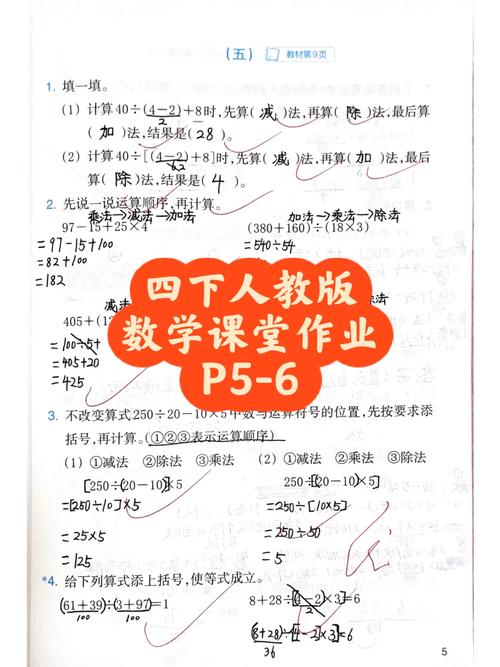 (五) 教材第9页
1. 填一填。
(1) 计算40÷(4-2)+8时,先算(减)法,再算(除)法,最后算
2
(加)法,结果是(28)。
(2) 计算40÷[(4-2)+8]时,先算(减)法,再算(加)法,最后
算(除)法,结果是(4)。
2. 先说一说运算顺序,再计算。
乘法→减法→加法 加法→乘法→除法
97-15+25×4 (380+160)÷(18×3)
=97-15+100 =540÷54
=82+100
=182
四下人教版
数学课堂作业
P5-6
减法 除法
405+(1
=100÷5+
=405+20
=425
3. 不改变算式250÷20-10×5中数与运算符号的位置,先按要求添
括号,再计算。(①②③表示运算顺序)
(1) ①减法 ②除法 ③乘法 (2) ①减法 ②乘法 ③除法
[250÷(20-10)]×5 250÷[(20-10)×5]
=[250÷10]×5 =250÷[10×5]
=25×5 =250÷50
=125 =5
*4. 给下列算式添上括号,使等式成立。
(61+39)÷(3+97)=1 8+28÷[(4-2)×3]=6
100 100
(8+28)÷[(4-2)×3]=6
36
5